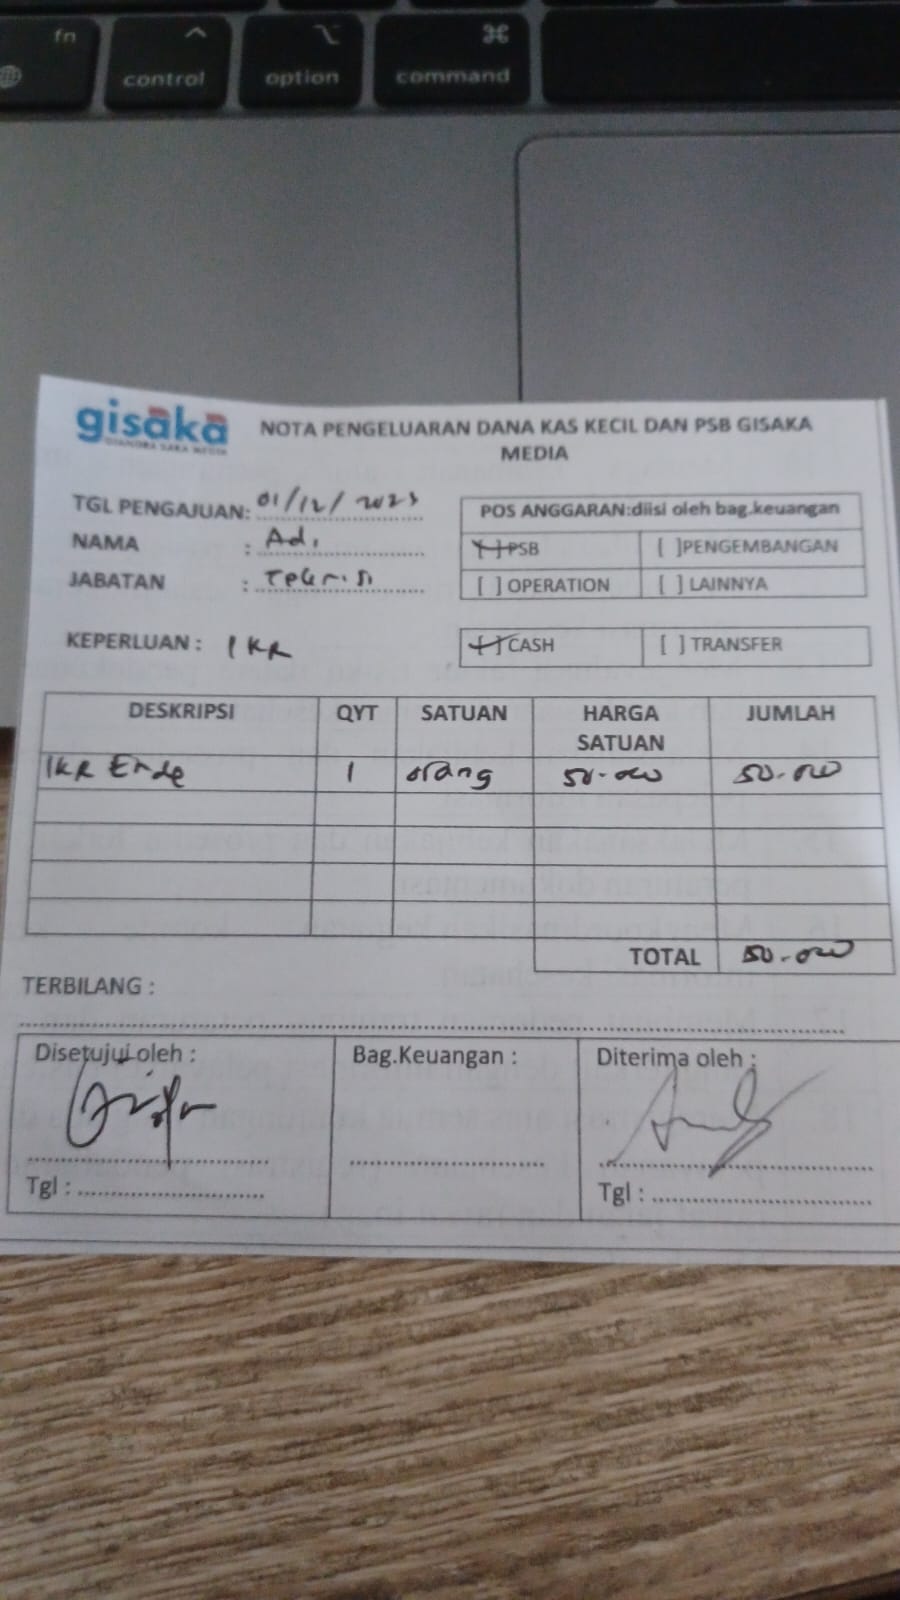 fn
control
option
command
gisaka
NOTA PENGELUARAN DANA KAS KECIL DAN PSB GISAKA
MEDIA
TGL PENGAJUAN: 01/12/2023
NAMA : Adi
JABATAN : Teknisi
POS ANGGARAN:diisi oleh bag.keuangan
PSB [ ]PENGEMBANGAN
[ ] OPERATION [ ] LAINNYA
KEPERLUAN : IKR
CASH [ ] TRANSFER
DESKRIPSI QYT SATUAN HARGA SATUAN JUMLAH
IKR Ende 1 orang 50.000 50.000
TOTAL 50.000
TERBILANG :
Disetujui oleh : Bag.Keuangan : Diterima oleh :
Tgl : Tgl :